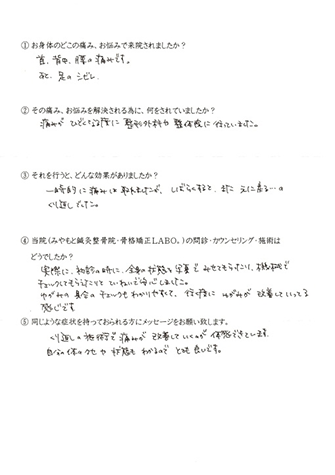 ① お身体のどこの痛み、お悩みで来院されましたか？
首、背中、腰の痛みです。
あと、足のシビレ。
② その痛み、お悩みを解決される為に、何をされていましたか？
痛みがひどくなる度に整形外科や整体院に行っていました。
③ それを行うと、どんな効果がありましたか？
一時的に痛みは取れましたが、しばらくすると、また元に戻る…の
くり返しでした。
④ 当院(みやもと鍼灸整骨院・骨格矯正LABO。)の問診・カウンセリング・施術は
どうでしたか？
実際に、初診の時に、全身の状態を写真でみせてもらったり、機械で
チェックしてもらったりとていねいで安心しました。
ゆがみの具合のチェックもわかりやすくて、行く度にゆがみが改善していってる
感じです
⑤ 同じような症状を持っておられる方にメッセージをお願い致します。
くり返しの施術で痛みが改善していくのが体感できています。
自分の体のクセや状態もわかるのでとても良いです。